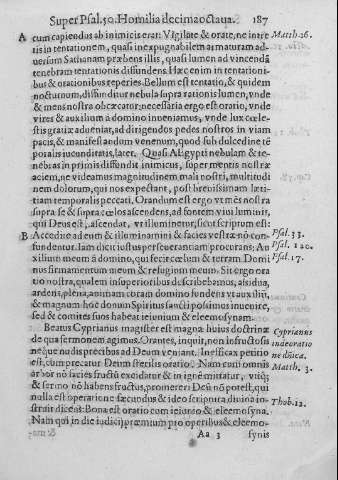 Super Psal. 50. Homilia decimaoctaua. 187
A cum capiendus ab inimicis erat: Vigilate & orate, ne intre Matth. 26.
tis in tentationem, quasi inexpugnabilem armaturam ad-
uersum Sathanam præbens illis, quasi lumen ad vincendā
tenebram tentationis diffundens. Hæc enim in tentationi-
bus & orationibus reperies. Bellum est tentatio, & quidem
nocturnum, diffunditur nebula supra rationis lumen, vnde
& mens nostra obcæcatur: necessaria ergo est oratio, vnde
vires & auxilium à domino inueniamus, vnde lux cœle-
stis gratiæ adueniat, ad dirigendos pedes nostros in viam
pacis, & manifestandum venenum, quod sub dulcedine tē
poralis iucunditatis, latet. Quasi AEgypti nebulam & te-
nebras in primis diffundit inimicus, super mentis nostræ
aciem, ne videamus magnitudinem mali nostri, multitudi
nem dolorum, qui nos expectant, post breuissimam læti-
tiam temporalis peccati. Orandum est ergo vt mēs nostra
supra se & supra cœlos ascendens, ad fontem viui luminis,
qui Deus est, ascendat, vt illuminetur, sicut scriptum est:
B Accedite ad eum & illuminamini & facies vestræ nō con- Psal. 33.
fundentur. Iam dicit iustus perseuerantiam procurans: Au Psal. 120.
xilium meum à domino, qui fecit cœlum & terram. Domi Psal. 17.
nus firmamentum meum & refugium meum. Sit ergo ora
tio nostra, qualem in superioribus describebamus, assidua,
ardens, plena, animam coram domino fundens vt auxiliū,
& magnum hoc donum Spiritus sancti possimus inuenire,
sed & comites suos habeat ieiunium & eleemosynam.
Beatus Cyprianus magister est magnæ huius doctrinæ
de qua sermonem agimus. Orantes, inquit, non infructosis Cyprianus
neque nudis precibus ad Deum veniant. Inefficax petitio in de oratio
est, cum precatur Deum sterilis oratio. Nam cum omnis ne dñica.
arbor nō faciēs fructū excidatur & in ignē mittatur, vtiq; Matth. 3.
& sermo nō habens fructus, promereri Deū nō potest, qui
nulla est operatione fæcundus & ideo scriptura diuina in-
struit dicens: Bona est oratio cum ieiunio & eleemosyna. Thob. 12.
Nam qui in die iudicij præmium pro operibus & eleemo-
Aa 3 synis